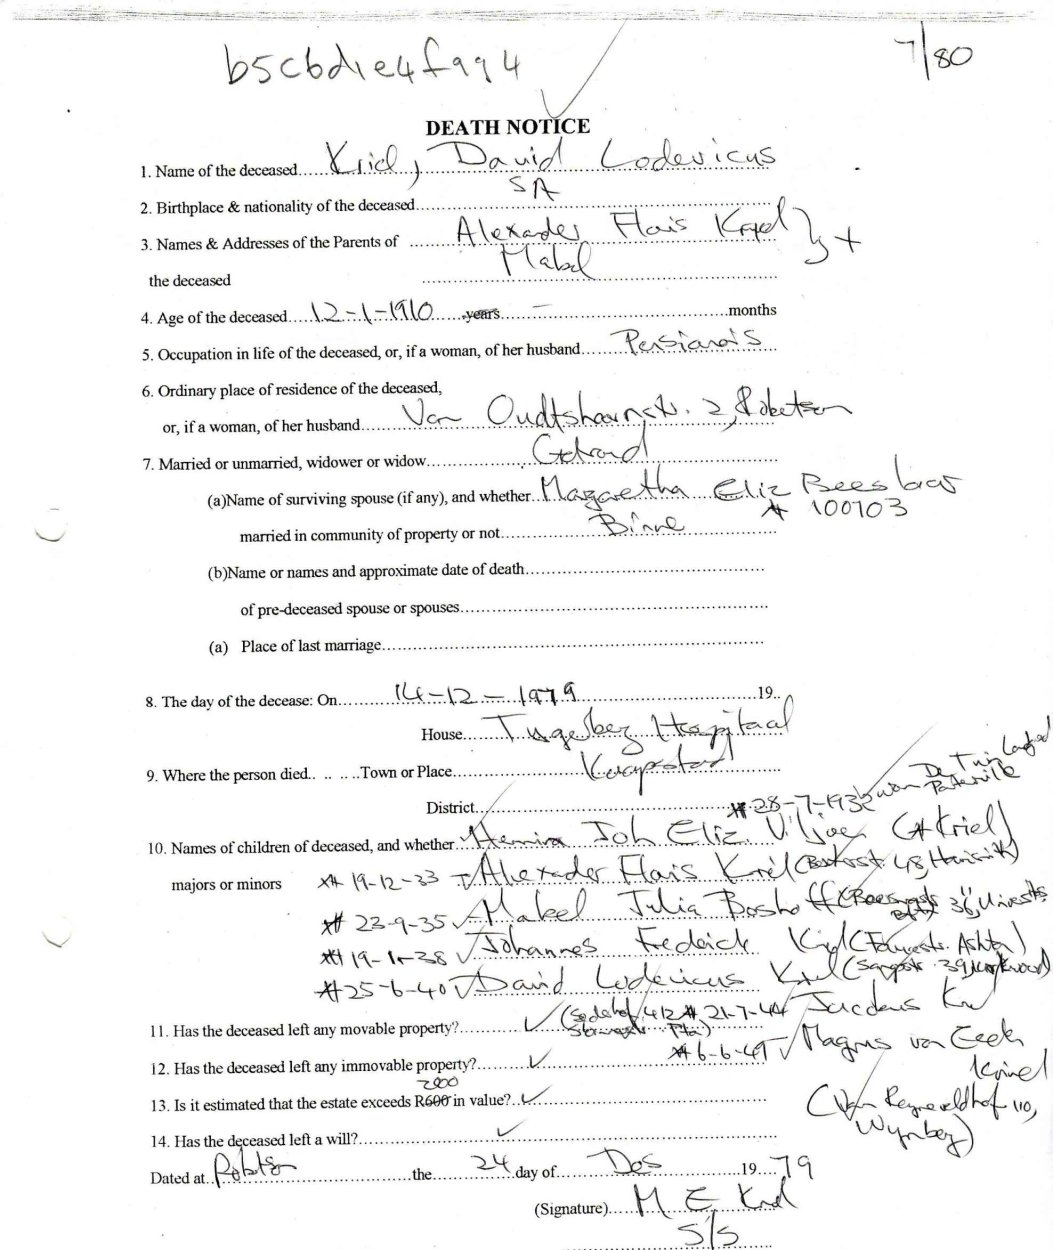 b5cbd1e4fqq4
7/80
DEATH NOTICE
1. Name of the deceased Kriel, David Lodevicus
2. Birthplace & nationality of the deceased SA
3. Names & Addresses of the Parents of Alexander Flois Kriel } +
the deceased Mabel
4. Age of the deceased 12-1-1910 years – months
5. Occupation in life of the deceased, or, if a woman, of her husband
6. Ordinary place of residence of the deceased,
or, if a woman, of her husband Van Oudtshoornstr. 2, Robertson
7. Married or unmarried, widower or widow Getroud
(a)Name of surviving spouse (if any), and whether Magaretha Eliz Beeslaar
* 100703
married in community of property or not Binne
(b)Name or names and approximate date of death
of pre-deceased spouse or spouses
(a) Place of last marriage
8. The day of the decease: On 14-12-1979 19..
House Tygerberg Hospitaal
9. Where the person died.. .. ..Town or Place Kaapstad
De Tuin
District * 28-7-1932 van
10. Names of children of deceased, and whether Joh Eliz. Viljoen (* Kriel)
majors or minors * 19-12-33 Alexander Flois Kriel 48,
* 23-9-35 Mabel Julia Boshoff 36,
* 19-1-38 Johannes Frederick Kriel Ashton)
* 25-6-40 David Lodevicus Kriel 39,
11. Has the deceased left any movable property? ✓ 412 * 21-7-44 Jacobus
Pta)
* 6-6-47 ✓ Magnus van Eeck
12. Has the deceased left any immovable property? ✓
Kriel
2000
13. Is it estimated that the estate exceeds R600 in value? ✓
(Van 110,
Wynberg)
14. Has the deceased left a will? ✓
Dated at Robertson the 24 day of Des 19 79
(Signature) M E Kriel
S/S